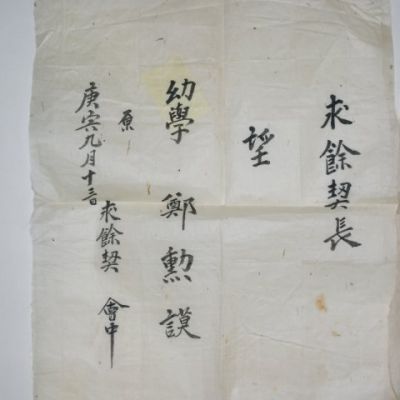 求餘契長
望
幼學 鄭勲謨
原
庚寅九月十三日 求餘契 會中